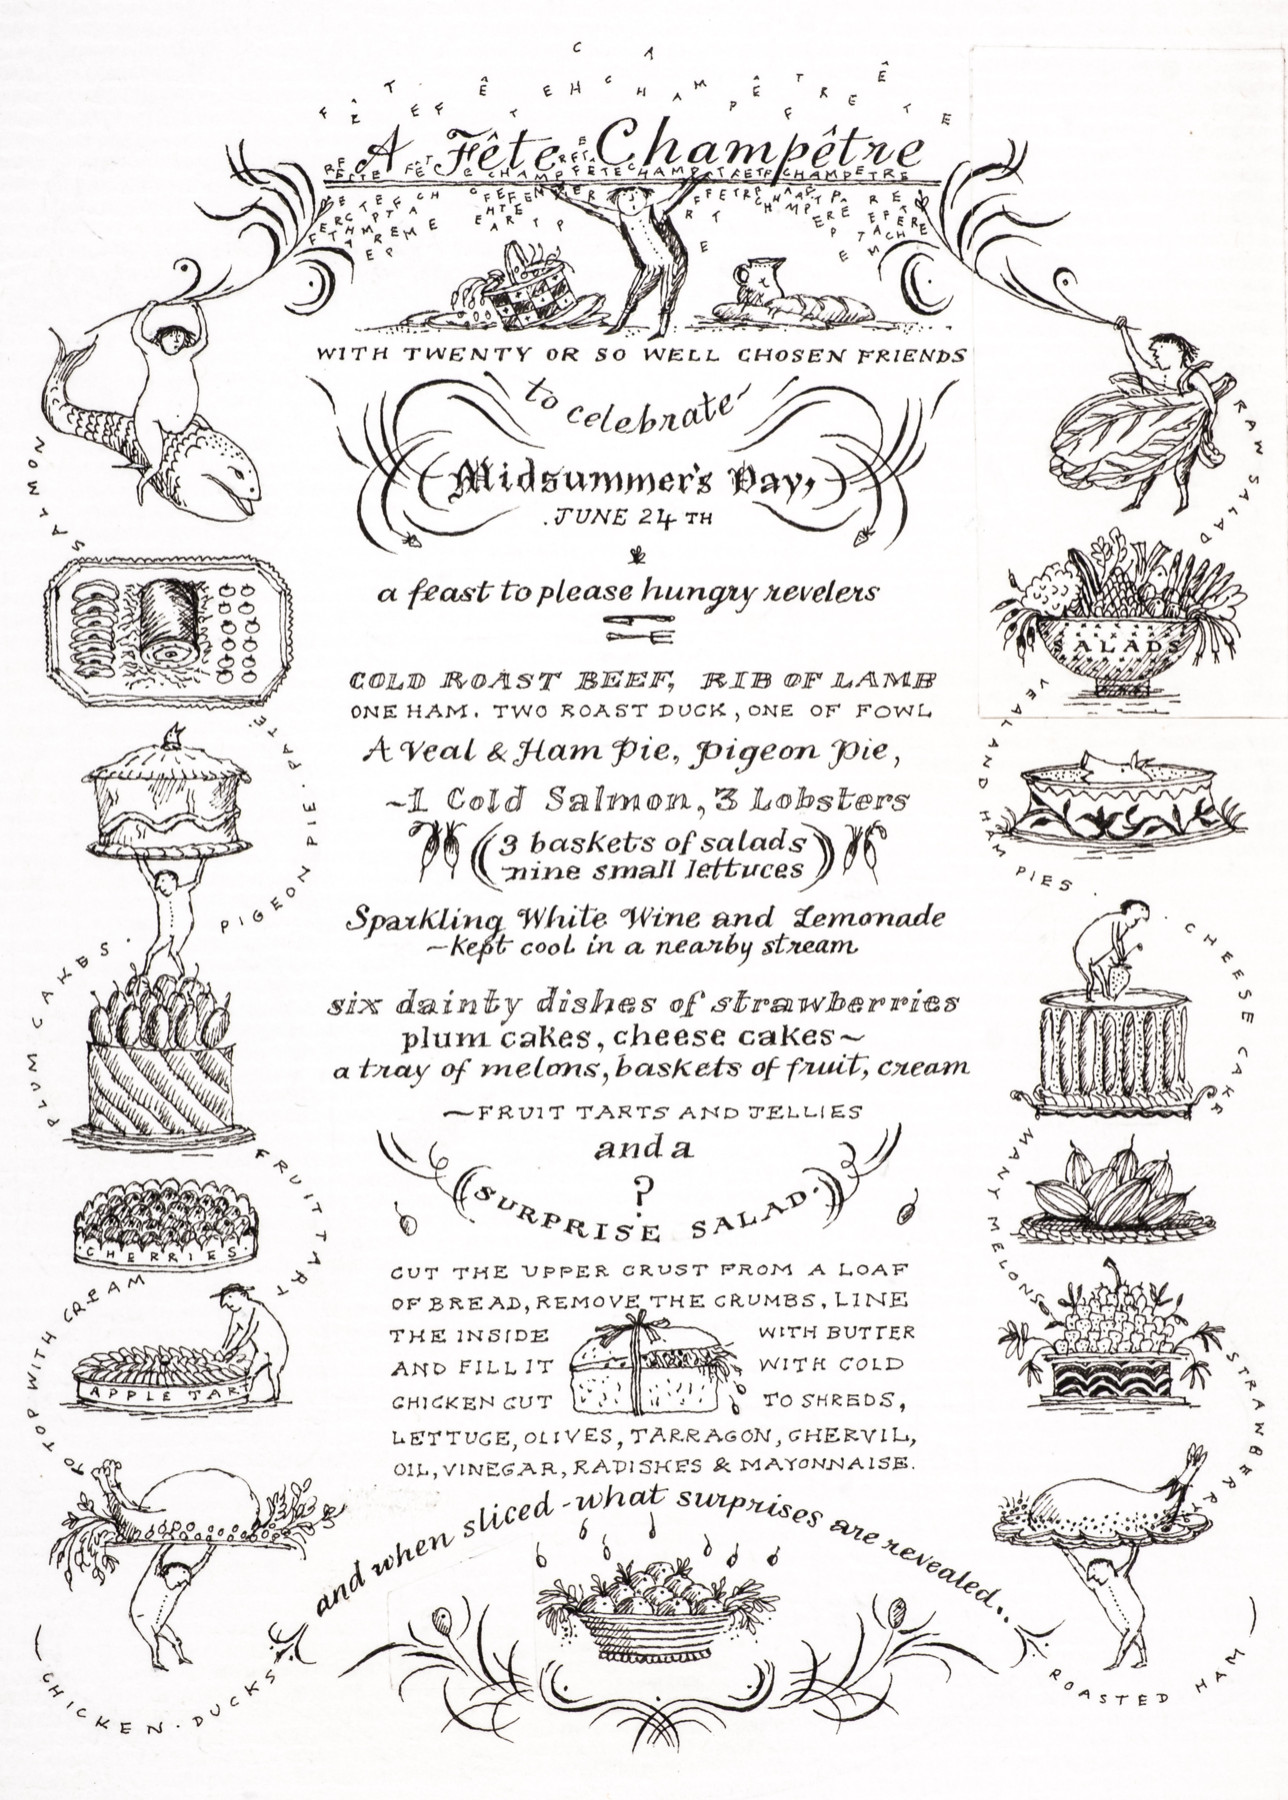 A Fête Champêtre
WITH TWENTY OR SO WELL CHOSEN FRIENDS
to celebrate
Midsummer's Day,
JUNE 24 TH
a feast to please hungry revelers
COLD ROAST BEEF, RIB OF LAMB
ONE HAM. TWO ROAST DUCK, ONE OF FOWL
A Veal & Ham Pie, Pigeon Pie,
~1 Cold Salmon, 3 Lobsters
(3 baskets of salads
nine small lettuces)
Sparkling White Wine and Lemonade
~kept cool in a nearby stream
six dainty dishes of strawberries
plum cakes, cheese cakes~
a tray of melons, baskets of fruit, cream
~FRUIT TARTS AND JELLIES
and a
?
(SURPRISE SALAD.)
CUT THE UPPER CRUST FROM A LOAF
OF BREAD, REMOVE THE CRUMBS, LINE
THE INSIDE WITH BUTTER
AND FILL IT WITH COLD
CHICKEN CUT TO SHREDS,
LETTUCE, OLIVES, TARRAGON, CHERVIL,
OIL, VINEGAR, RADISHES & MAYONNAISE.
and when sliced - what surprises are revealed..
SALMON
PIGEON PIE. PATÉ.
PLUM CAKES.
FRUIT TART
CHERRIES
TO TOP WITH CREAM
APPLE TART
CHICKEN. DUCKS
RAW SALAD
SALADS
VEAL AND HAM PIES.
CHEESE CAKE
MANY MELONS
STRAWBERRY
ROASTED HAM